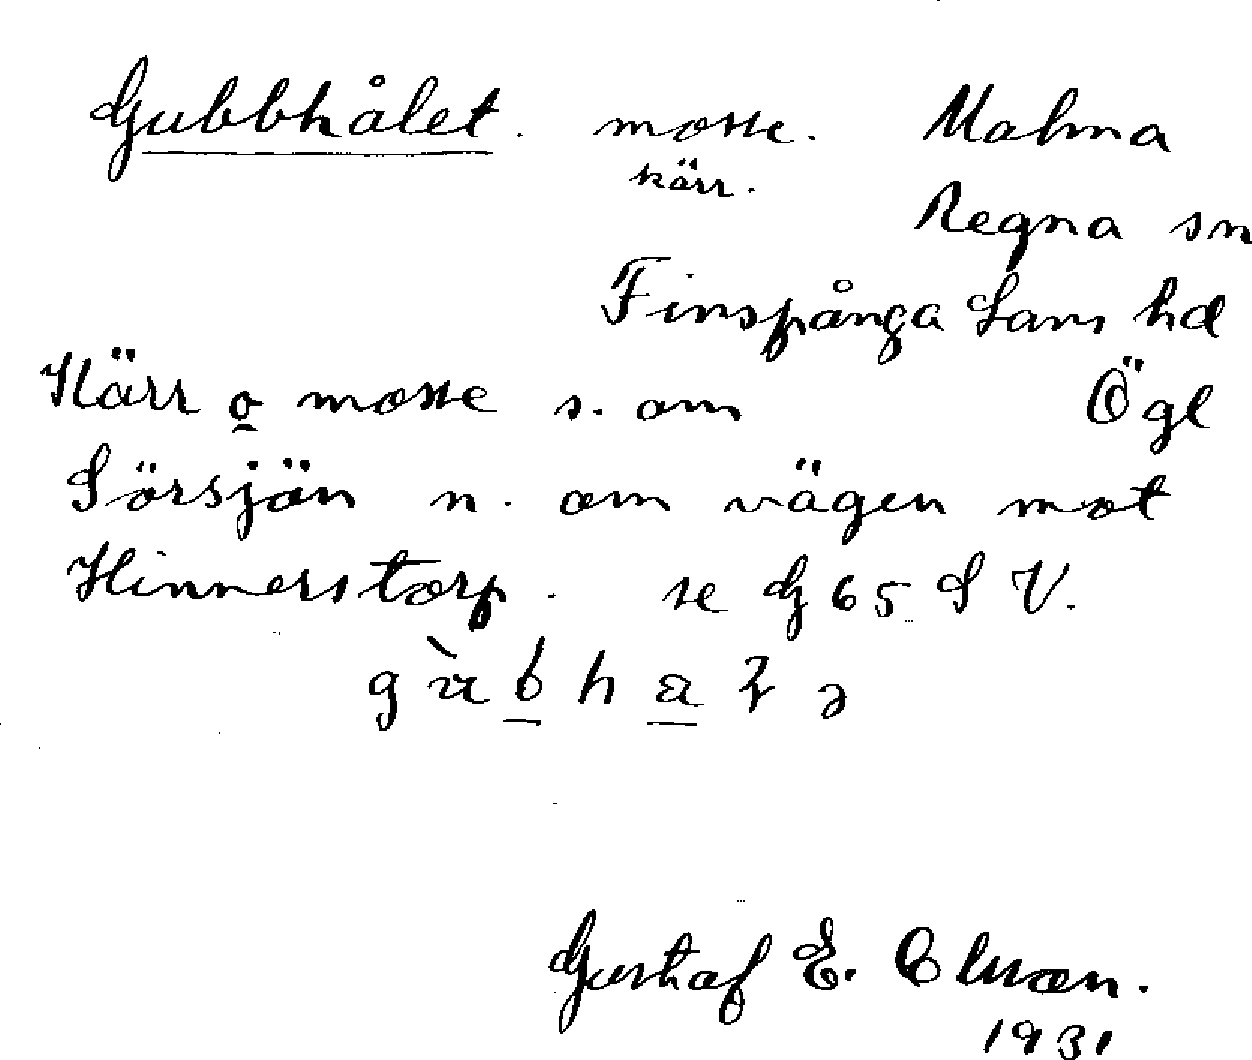 Gubbhålet. mosse. Malma
kärr.
Regna sn
Finspånga Läns hd
Kärr o mosse s. om Ögl
Sörsjön n. om vägen mot
Hinnerstorp. se G 65 S V.
Gustaf E. Clason.
1931